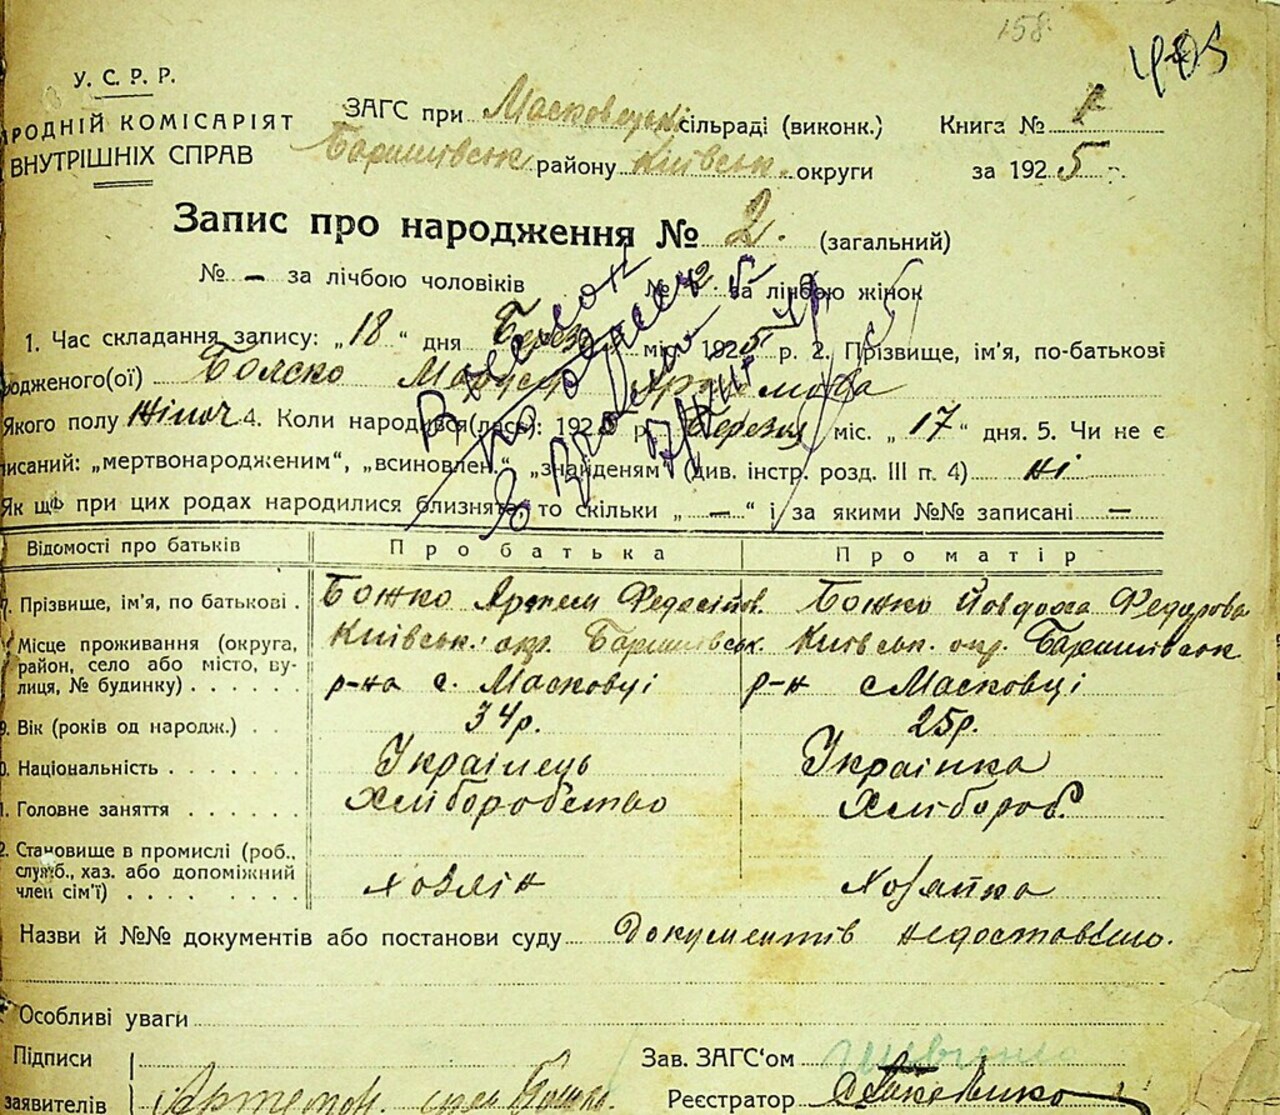 158
У. С. Р. Р.
РОДНІЙ КОМІСАРІЯТ
ВНУТРІШНІХ СПРАВ
ЗАГС при Масковецькі сільраді (виконк.) Книга №
Баришівськ району Київськ. округи за 1925
Запис про народження № 2. (загальний)
№ – за лічбою чоловіків № 2 за лічбою жінок
1. Час складання запису: „18“ дня Березн міс. 1925 р. 2. Прізвище, ім'я, по-батькові
родженого(ої) Артемова
Якого полу жіноч 4. Коли народився(лась): 1925 р. Березня міс. „17“ дня. 5. Чи не є
писаний: „мертвонародженим“, „всиновлен.“ „знайденям“ (див. інстр. розд. III п. 4) ні
Як що при цих родах народилися близнята, то скільки „ – “ і за якими №№ записані –
Відомості про батьків Про батька Про матір
7. Прізвище, ім'я, по батькові . Божко Артем Федосійов. Божко Йовдоха Федурова
Місце проживання (округа, район, село або місто, вулиця, № будинку) . . . . . . Київськ. окр. Баришівськ. р-на с. Масковці Київськ. окр. Баришівськ р-н с Масковці
9. Вік (років од народж.) . . 34р. 25р.
0. Національність . . . . . . . Українець Українка
1. Головне заняття . . . . . . Хліборобство Хлібороб.
2. Становище в промислі (роб., служб., хаз. або допоміжний член сім'ї) . . . . . . . Хозяїн Хозяйка
Назви й №№ документів або постанови суду Документів недоставлено.
Особливі уваги
Підписи Зав. ЗАГС'ом Шевченко
заявителів Реєстратор